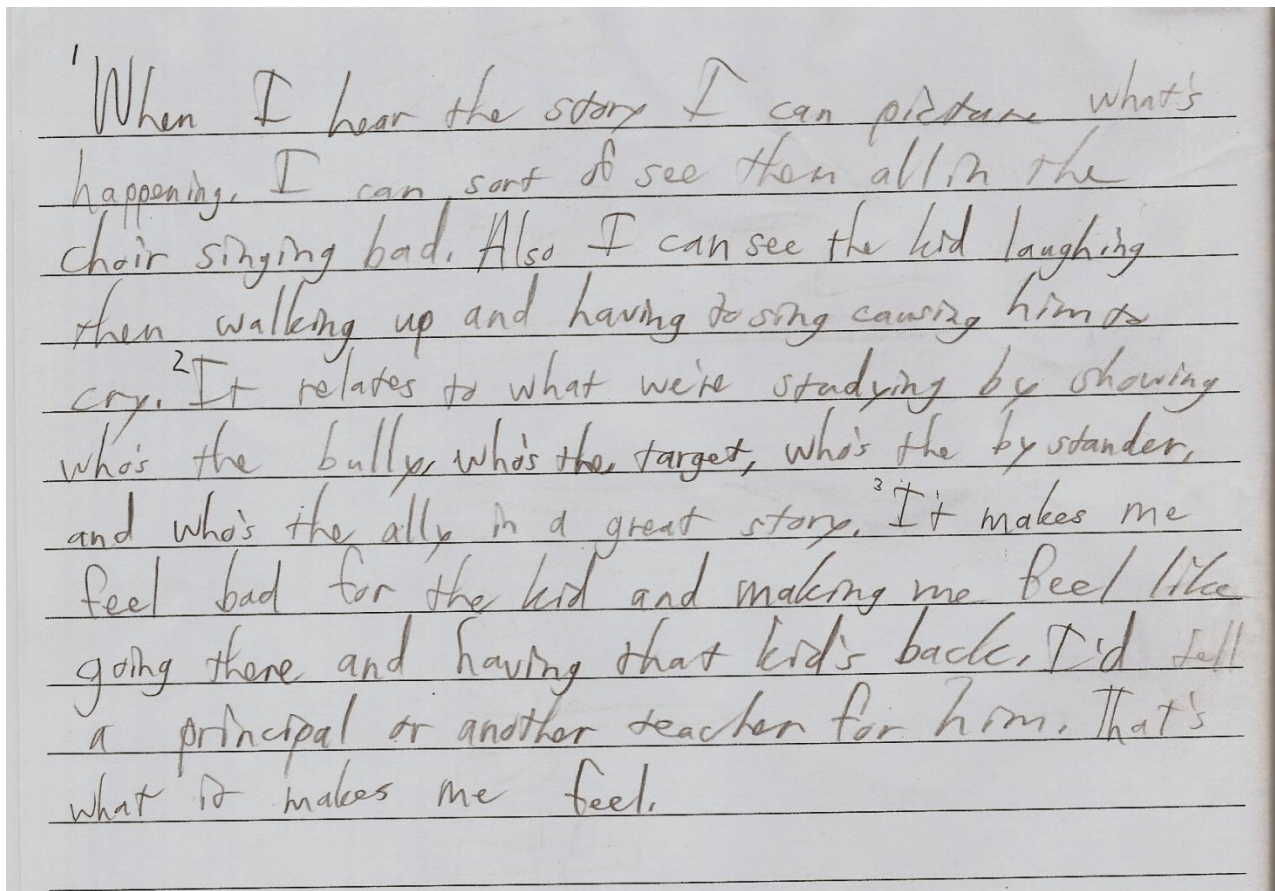 1 When I hear the story I can picture what's
happening. I can sort of see them all in the
choir singing bad. Also I can see the kid laughing
then walking up and having to sing causing him to
cry. 2 It relates to what we're studying by showing
who's the bully, who's the target, who's the by stander,
and who's the ally in a great story. 3 It makes me
feel bad for the kid and making me feel like
going there and having that kid's back. I'd tell
a principal or another teacher for him. That's
what it makes me feel.